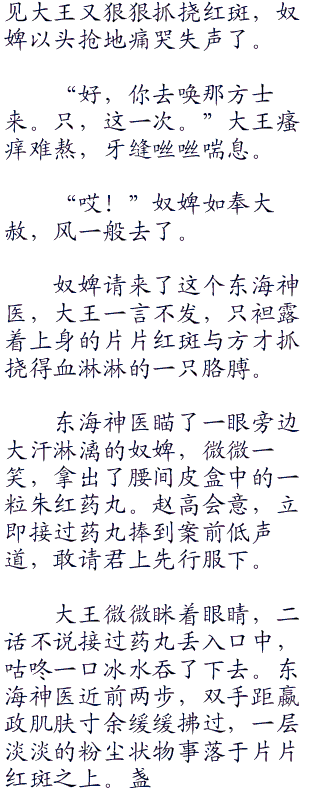 见大王又狠狠抓挠红斑，奴
婢以头抢地痛哭失声了。
“好，你去唤那方士
来。只，这一次。”大王瘙
痒难熬，牙缝咝咝喘息。
“哎！”奴婢如奉大
赦，风一般去了。
奴婢请来了这个东海神
医，大王一言不发，只袒露
着上身的片片红斑与方才抓
挠得血淋淋的一只胳膊。
东海神医瞄了一眼旁边
大汗淋漓的奴婢，微微一
笑，拿出了腰间皮盒中的一
粒朱红药丸。赵高会意，立
即接过药丸捧到案前低声
道，敢请君上先行服下。
大王微微眯着眼睛，二
话不说接过药丸丢入口中，
咕咚一口冰水吞了下去。东
海神医近前两步，双手距嬴
政肌肤寸余缓缓拂过，一层
淡淡的粉尘状物事落于片片
红斑之上。盏